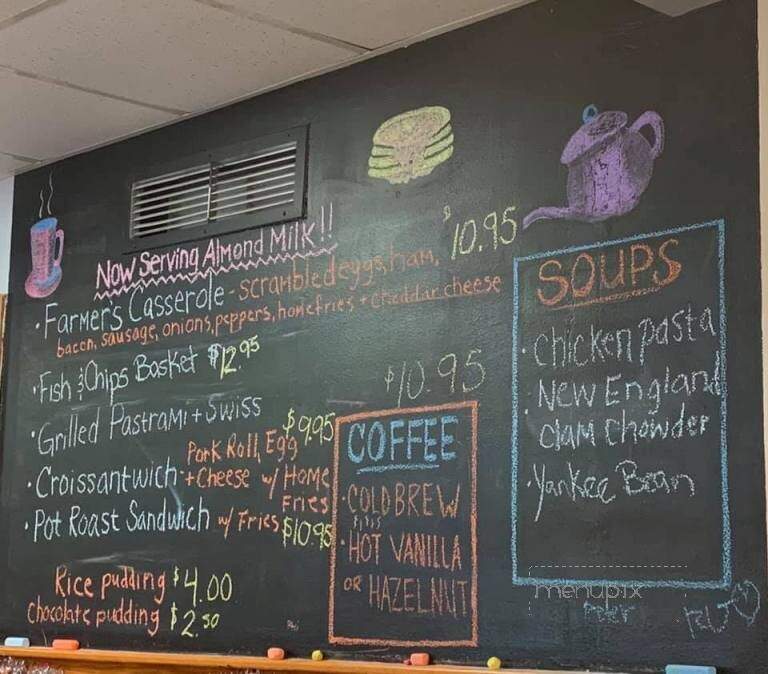 Now Serving Almond Milk!!
• Farmer's Casserole - scrambled eggs, ham, $10.95
bacon, sausage, onions, peppers, homefries + cheddar cheese
• Fish & Chips Basket $12.95
• Grilled Pastrami + Swiss $10.95
• Croissantwich - Pork Roll, Egg $9.95
+ Cheese w/ Home
Fries
• Pot Roast Sandwich w/ Fries $10.95
Rice pudding $4.00
Chocolate pudding $2.50
COFFEE
• COLD BREW
• HOT VANILLA
OR HAZELNUT
SOUPS
• Chicken pasta
• New England
clam chowder
• Yankee Bean
menupix